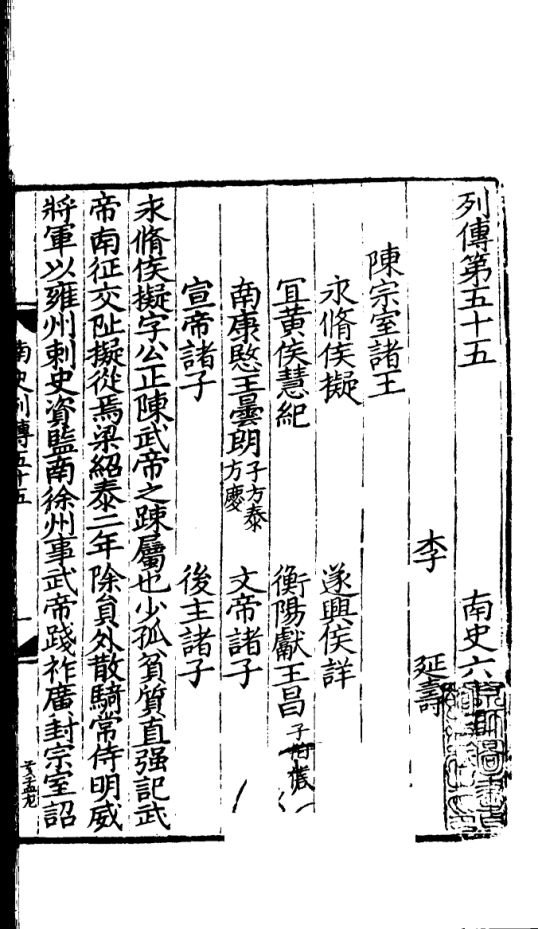 列傳第五十五 南史六
李 延壽
陳宗室諸王
永脩侯擬 遂興侯詳
冝黄侯慧紀 衡陽獻王昌 子伯信
南康愍王曇朗 子方泰 方慶 文帝諸子
宣帝諸子 後主諸子
永脩侯擬字公正陳武帝之踈屬也少孤貧質直强記武
帝南征交阯擬從焉梁紹泰二年除貟外散騎常侍明威
將軍以雍州刺史資監南徐州事武帝踐祚廣封宗室詔
南史列傳五十五 一